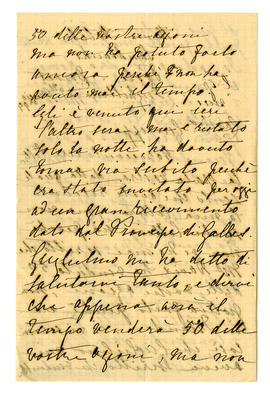 50 delle vostre azioni
ma non ha potuto farlo
ancora perchè non ha
avuto mai il tempo.
Egli è venuto qui ieri
l'altro sera ma è restato
solo la notte ha dovuto
tornar via subito perchè
era stato invitato per oggi
ad un gran ricevimento
dato dal Principe di Galles.
Guglielmo mi ha detto di
salutarvi tanto, e dirvi
che appena avrà il
tempo venderà 50 delle
vostre azioni, ma non